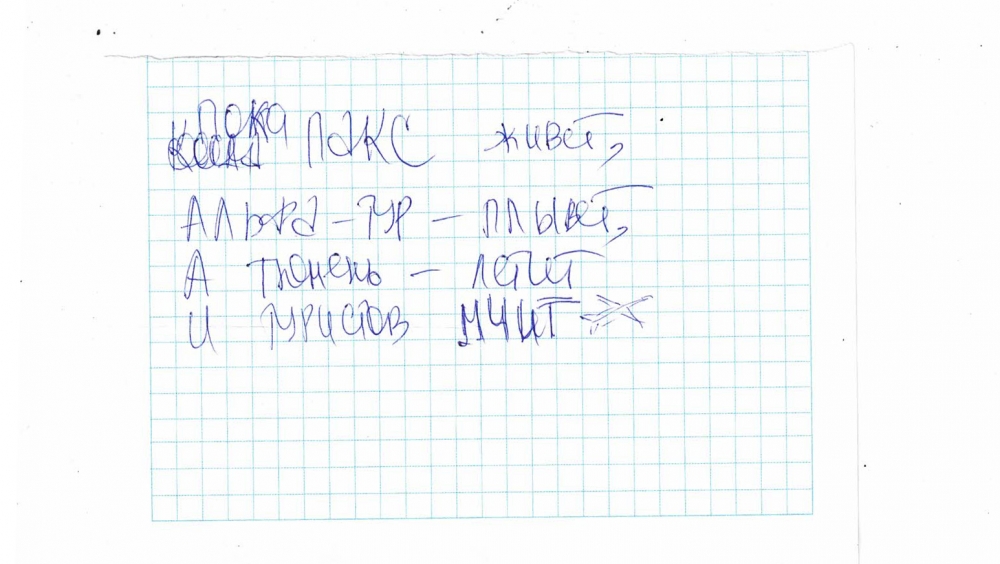 Пока ПАКС живёт,
Альфа-тур – плывёт,
А Тюмень – летит
И туристов мчит